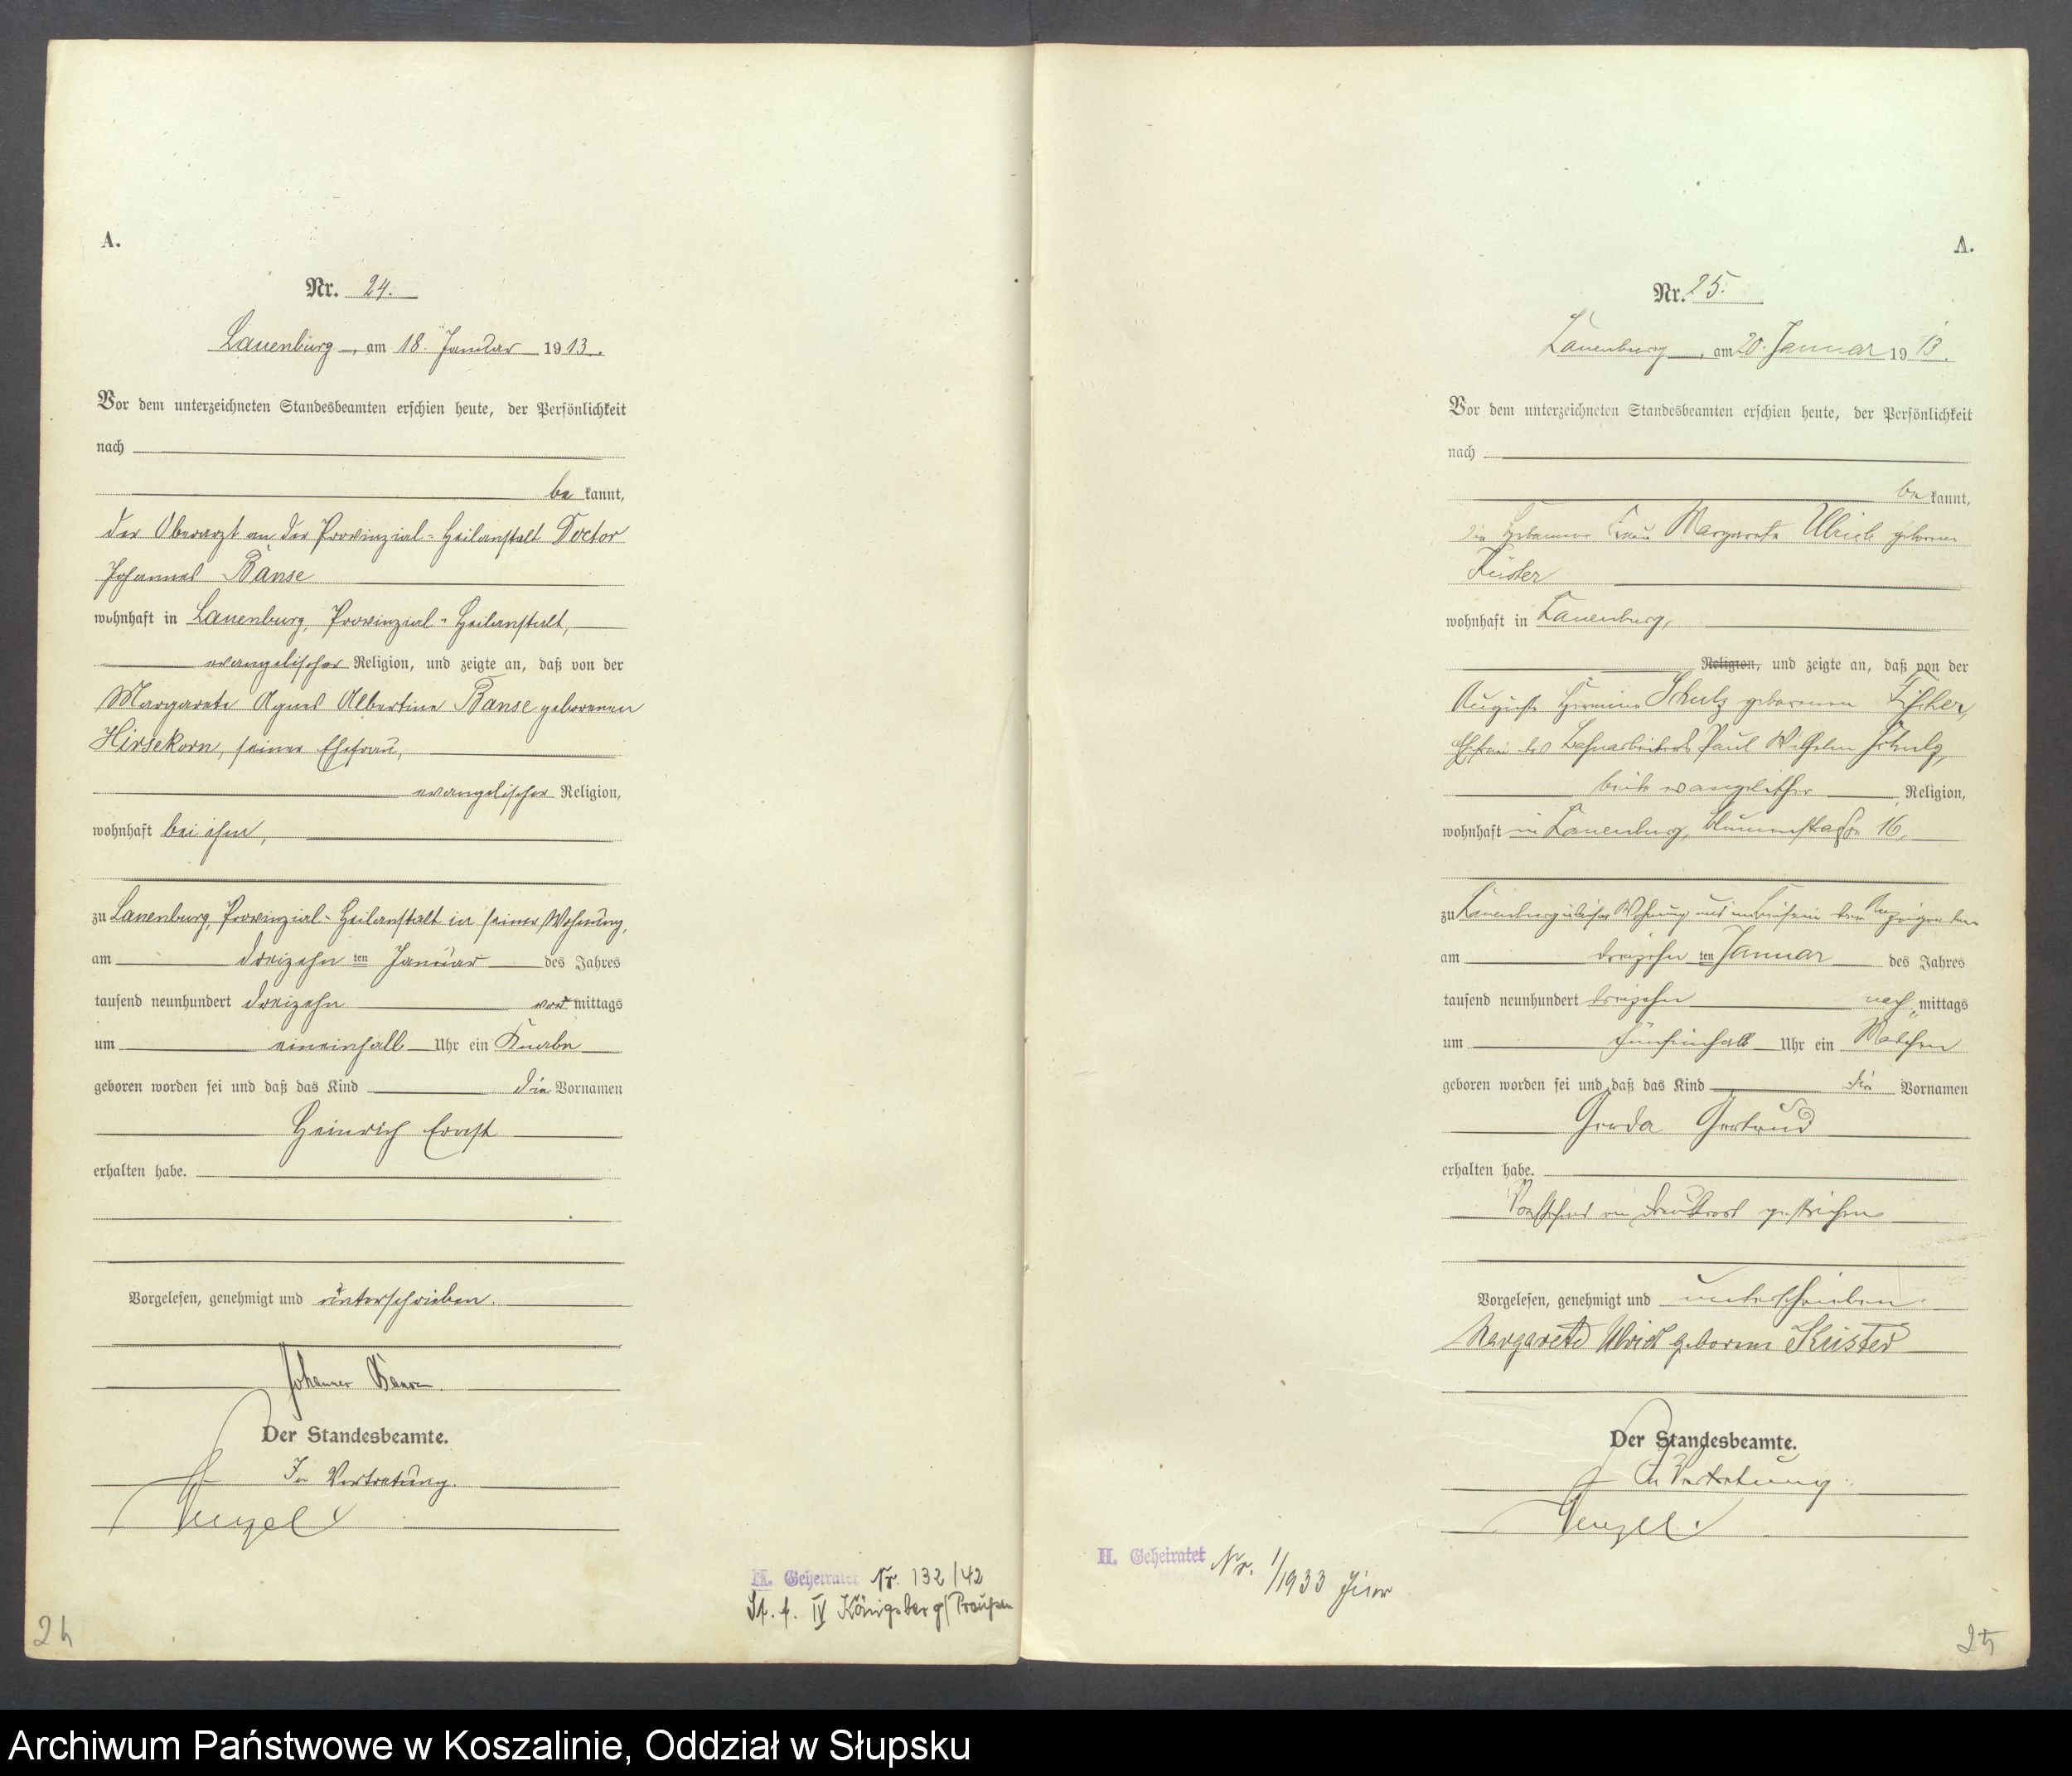 A.
Nr. 24.
Lauenburg, am 18. Januar 1913.
Vor dem unterzeichneten Standesbeamten erschien heute, der Persönlichkeit
nach
be kannt,
der Oberarzt an der Provinzial-Heilanstalt Doctor
Johannes Banse
wohnhaft in Lauenburg, Provinzial-Heilanstalt,
evangelischer Religion, und zeigte an, daß von der
Margarete Agnes Albertine Banse geborenen
Hirsekorn, seiner Ehefrau,
evangelischer Religion,
wohnhaft bei ihm,
zu Lauenburg, Provinzial-Heilanstalt in seiner Wohnung,
am dreizehn ten Januar des Jahres
tausend neunhundert dreizehn vor mittags
um eineinhalb Uhr ein Knabe
geboren worden sei und daß das Kind die Vornamen
Heinrich Ernst
erhalten habe.
Vorgelesen, genehmigt und unterschrieben.
Johannes Banse.
Der Standesbeamte.
In Vertretung.
H. Geheiratet Nr. 132/42
St. A. IV Königsberg/Preußen
24
A.
Nr. 25.
Lauenburg, am 20. Januar 1913.
Vor dem unterzeichneten Standesbeamten erschien heute, der Persönlichkeit
nach
be kannt,
die Hebamme Frau Margarete Ulrich geborene
Küster
wohnhaft in Lauenburg,
Religion, und zeigte an, daß von der
Auguste Hermine Schulz geborenen Fischer,
Ehefrau des Bahnarbeiters Paul Wilhelm Schulz,
beide evangelischer Religion,
wohnhaft in Lauenburg, Blumenstraße 16,
zu Lauenburg in dieser Wohnung und im Beisein der Anzeigenden
am dreizehn ten Januar des Jahres
tausend neunhundert dreizehn nach mittags
um fünfeinhalb Uhr ein Mädchen
geboren worden sei und daß das Kind die Vornamen
Gerda Gertrud
erhalten habe.
Vorstehend ein Druckwort gestrichen
Vorgelesen, genehmigt und unterschrieben.
Margarete Ulrich geborene Küster
Der Standesbeamte.
In Vertretung.
H. Geheiratet Nr. 1/1933 hier
25
Archiwum Państwowe w Koszalinie, Oddział w Słupsku